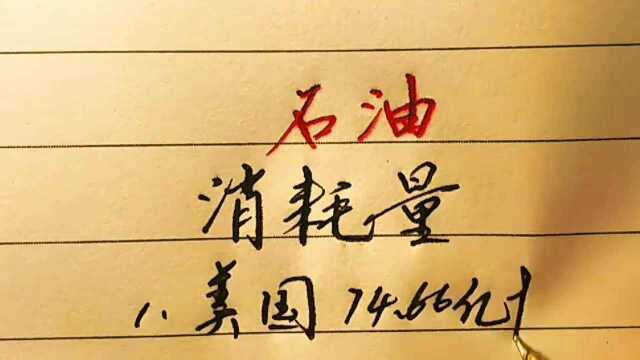 石油
消耗量
1.美国 74.66亿